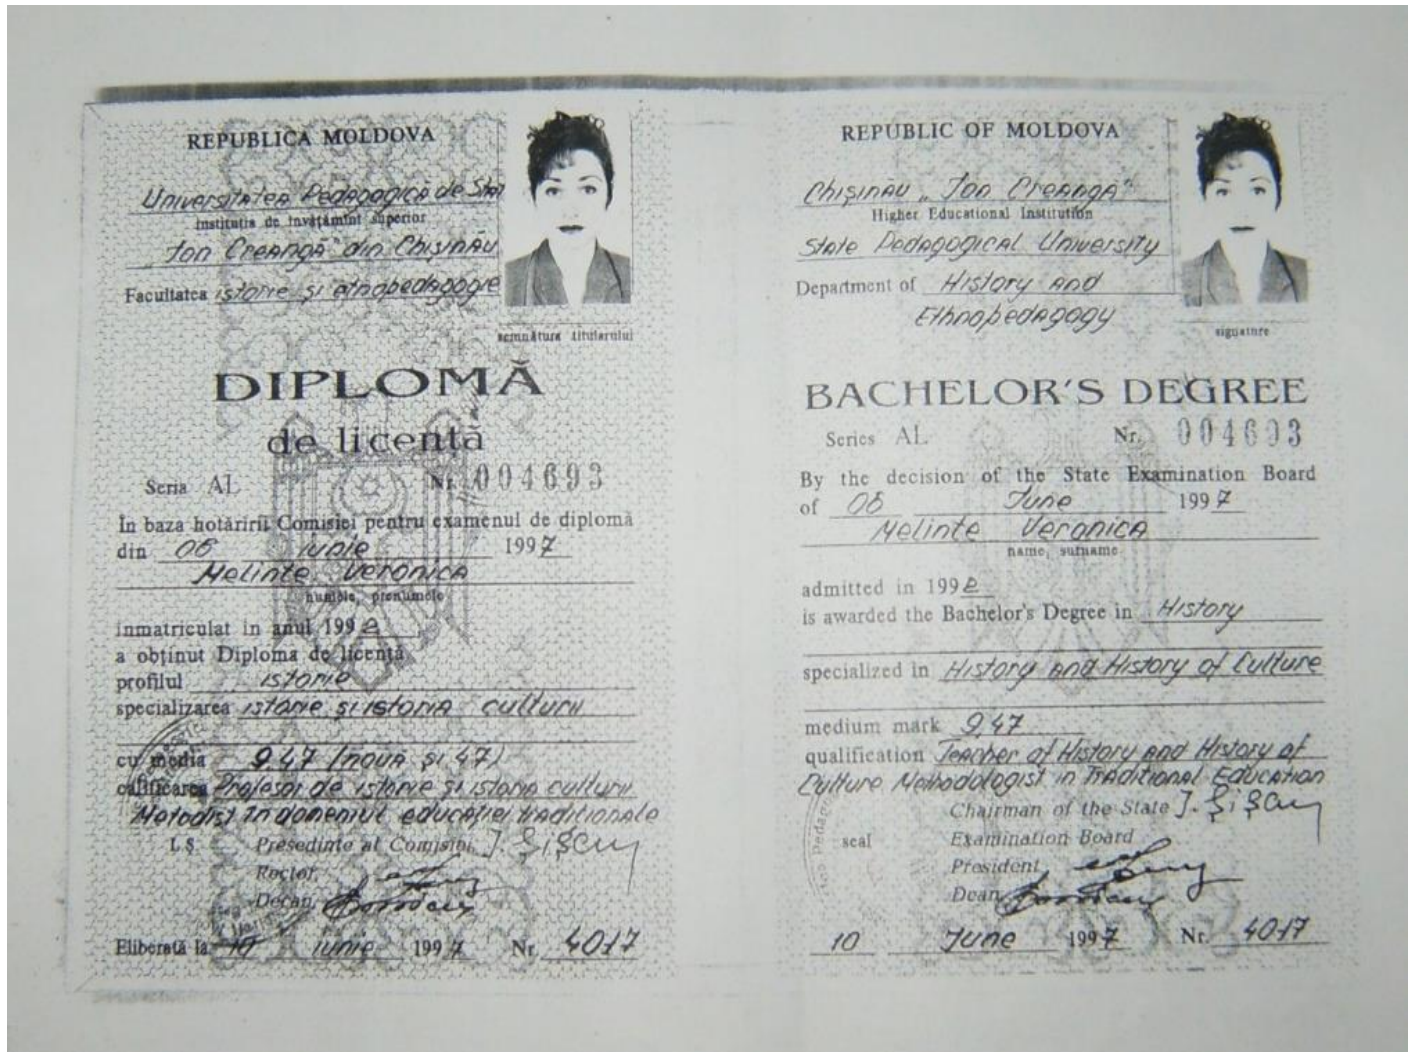 REPUBLICA MOLDOVA
Universitatea Pedagogică de Stat
Instituția de învățămînt superior
"Ion Creangă" din Chișinău
Facultatea istorie și etnopedagogie
semnătura titularului
DIPLOMĂ
de licență
Seria AL Nr. 004693
În baza hotărîrii Comisiei pentru examenul de diplomă
din 06 iunie 1997
Melinte Veronica
numele, prenumele
inmatriculat in anul 1992
a obținut Diploma de licență
profilul istorie
specializarea istorie și istoria culturii
cu media 9,47 (nouă și 47)
calificarea Profesor de istorie și istoria culturii
Metodist în domeniul educației tradiționale
L.Ș. Președinte al Comisiei J. Șișcanu
Rector
Decan
Eliberată la 10 iunie 1997 Nr. 4017
REPUBLIC OF MOLDOVA
Chișinău "Ion Creangă"
Higher Educational Institution
State Pedagogical University
Department of History and
Ethnopedagogy
signature
BACHELOR'S DEGREE
Series AL Nr. 004693
By the decision of the State Examination Board
of 06 June 1997
Melinte Veronica
name, surname
admitted in 1992
is awarded the Bachelor's Degree in History
specialized in History and History of Culture
medium mark 9,47
qualification Teacher of History and History of
Culture Methodologist in Traditional Education
Chairman of the State J. Șișcanu
seal Examination Board
President
Dean
10 June 1997 Nr. 4017